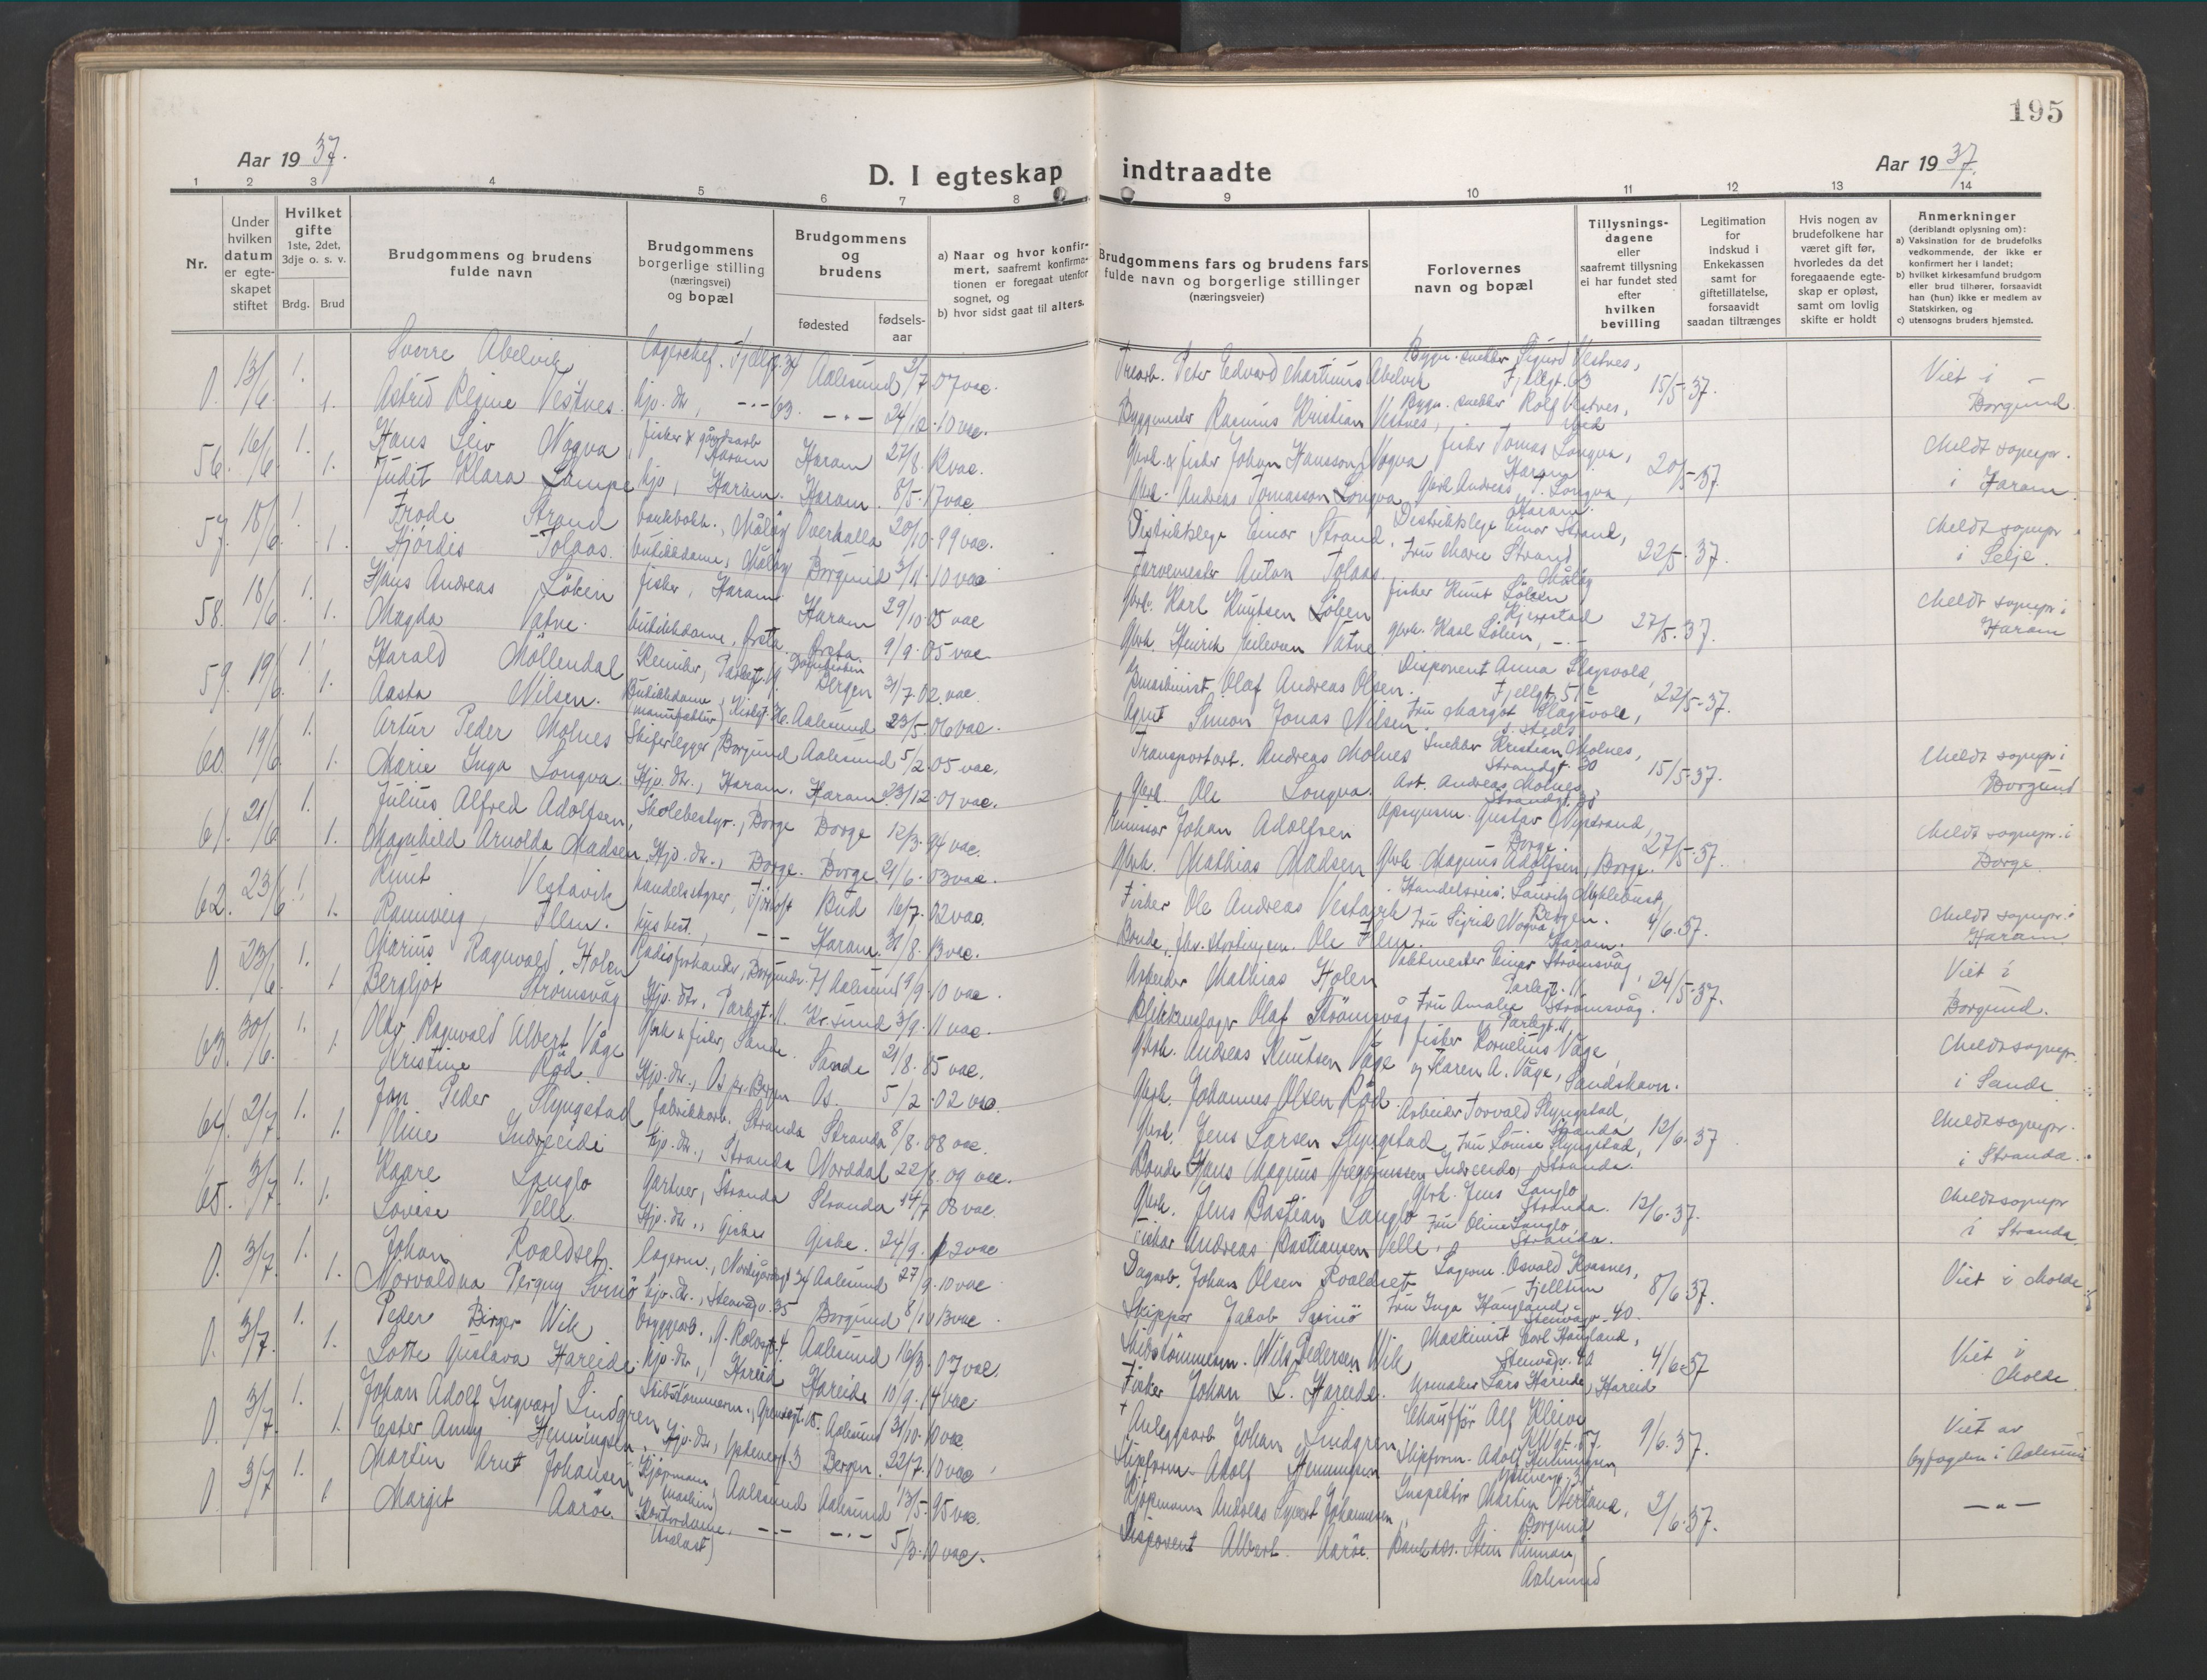 195
Aar 1937.
D. I egteskap indtraadte
Aar 1937.
1 2 3 4 5 6 7 8 9 10 11 12 13 14
Nr.
Under hvilken datum er egteskapet stiftet
Hvilket gifte 1ste, 2det, 3dje o. s. v.
Brdg. Brud
Brudgommens og brudens fulde navn
Brudgommens borgerlige stilling (næringsvei) og bopæl
Brudgommens og brudens
fødested
fødsels-aar
a) Naar og hvor konfirmert, saafremt konfirmationen er foregaat utenfor sognet, og
b) hvor sidst gaat til alters.
Brudgommens fars og brudens fars fulde navn og borgerlige stillinger (næringsveier)
Forlovernes navn og bopæl
Tillysningsdagene eller saafremt tillysning ei har fundet sted efter hvilken bevilling
Legitimation for indskud i Enkekassen samt for giftetillatelse, forsaavidt saadan tiltrænges
Hvis nogen av brudefolkene har været gift før, hvorledes da det foregaaende egteskap er opløst, samt om lovlig skifte er holdt
Anmerkninger (deriblandt oplysning om):
a) Vaksination for de brudefolks vedkommende, der ikke er konfirmert her i landet;
b) hvilket kirkesamfund brudgom eller brud tilhører, forsaavidt han (hun) ikke er medlem av Statskirken, og
c) utensogns bruders hjemsted.
0. 13/6 1. Sverre Abelvik Lagerchef. Fjellgt. 34 Aalesund 07 vac. Peter Edvard Martinus Abelvik Sigurd Vestnes, Fjellgt. 63 15/5-37. Viet i
1. Astrid Regine Vestnes. hjv. dtr, 63. 24/12-10 vac. Byggmester Rasmus Kristian Vestnes, Rolf Vestnes, Borgund
56. 16/6 1. Hans Leiv Nogva fisker & gårdsarb Haram Haram 27/8. 12 vac. Gbrk. & fisker Johan Hansson Nogva fisker Tomas Longva, Haram 20/5-37 Meldt sognepr.
1. Judit Klara Lampe hjv, Haram. Haram 8/5-17 vac. Gbrk. Andreas Tomasson Longva Gbrk Andreas T. Longva, Haram i Haram.
57. 18/6 1. Frode Strand bankbokh., Måløy Overhalla 20/10-99 vac. Distriktslege Einar Strand. Distriktslege Einar Strand, 22/5-37 Meldt sognepr
1. Hjördis Tolaas. butikkdame, Måløy Borgund 10 vac Farvemester Anton Tolaas. Fru Marie Strand Måløy i Selje.
58. 18/6 1. Hans Andreas Löken fisker, Haram Haram 29/10-05 vac Gbrk. Karl Knutsen Löken fisker Knut Löken Kjerstad 27/5-37. Meldt sognepr i
1. Magda Vatne. butikkdame, Ørsta. Ørsta 9/9-05 vac Gbrk. Henrik Vatne gbrk. Karl Löken, Haram
59. 19/6 1. Harald Möllendal Kemiker, Parkgt. 11 Bergen 31/7-02. vac. Olaf Andreas Olsen. Disponent Anna Slagsvold, Fjellgt. 51 c 22/5-37.
1. Aasta Nilsen. Butikkdame (manufaktur), Kirkgt. Aalesund 23/5-06 vac. Agent Simon Jonas Nilsen. Fru Margot Slagsvold,
60. 19/6 1. Artur Peder Molnes Skiferlegger, Borgund Aalesund 5/2-05 vac. Transportarb. Andreas Molnes Snekker Kristian Molnes, Strandgt. 30 15/5-37. Meldt sognepr i
1. Marie Inga Longva. Hjv. dtr., Haram. Haram. 23/12-01 vac. Gbrk. Ole Longva Arb. Andreas Molnes Strandgt. 30 Borgund
61. 21/6 1. Julius Alfred Adolfsen, Skolebestyr., Borge Borge 12/3-94 vac. Johan Adolfsen Gustav Borge 27/5-37. Meldt sognepr. i
1. Magnhild Arnolda Madsen, Hjv. dtr., Borge. Borge. 21/6-03 vac. Gbrk. Mathias Madsen Gbrk. Magnus Adolfsen, Borge. Borge
62. 23/6 1. Knut Vestavik handelsstyrer, Fjörtoft Bud 16/7-02 vac. Fisker Ole Andreas Vestavik Handelsreis. Lauritz Myklebust, Bergen. 4/6-37. Meldt sognepr. i
1. Rannveig Flem. hus best., Haram. 31/8-13 vac. Bonde, fhv. stortingsm. Ole Flem. Fru Sigrid Nogva Haram. Haram
0. 23/6 1. Marius Ragnvald Holen Radioforhandler, Borgundv. 71 Aalesund 19/9-10 vac. Arbeider Mathias Holen Vaktmester Einar Strömsvåg, Parkgt. 11 24/5-37. Viet i
1 Bergljot Strömsvåg Hjv. dtr. Parkgt. 11. Kr.sund 3/9-11 vac. Blikkenslager Olaf Strömsvåg Fru Amalie Strömsvåg. Parkgt. 11. Borgund.
63. 30/6 1. Olav Ragnvald Albert Våge Gbrk & fisker, Sande Sande 21/8-85 vac. Gbrk. Andreas Knutsen Våge fisker Kornelius Våge, Meldt sognepr.
1. Kristine Röd. Hjv. dtr., Os pr. Bergen Os. 5/2-02 vac. Gbrk. Johannes Olsen Röd. og Karen A. Våge, Sandshavn. i Sande
64. 2/7 1. Jon Peder Slyngstad fabrikkarb. Stranda Stranda 8/8-08 vac. Gbrk. Jens Larsen Slyngstad Arbeider Torvald Slyngstad, Stranda 12/6-37 Meldt sognepr.
1. Oline Indreeide hjv. dtr., Stranda Norddal 22/8-09 vac. Bonde Hans Magnus Gregoriussen Indreeide Fru Louise Slyngstad, Stranda. i Stranda.
65. 3/7 1. Kaare Langlo Gartner, Stranda Stranda 14/7 08 vac. Gbrk. Jens Bastian Langlo Gbrk. Jens Langlo Stranda. 12/6-37. Meldt sognepr
1. Lovise Velle Hjv. dtr., Giske Giske. 24/9-12 vac Fisker Andreas Bastiansen Velle, Fru Oline Langlo, Stranda. i Stranda.
0. 3/7 1. Johan Roaldset. lagerm., Aalesund 27/9-10 vac Dagarb. Johan Olsen Roaldset Lagerm. Osvald Fjelltun 8/6-37. Viet i Molde
1. Norvaldna Perguy Svinö hjv. dtr., Stenvågv. 35 Borgund 8/10 13 vac. Skipper Jakob Svinö Fru Inga Haugland, Stenvågv. 40.
0. 3/7 1. Peder Birger Wik bryggearb., G. Rolvsgt. 4 Aalesund 16/3-07 vac. Skibstömmerm. Nils Pedersen Wik Maskinist Carl Haugland, Stenvågv. 40 4/6-37 Viet i
1. Lotte Gustava Hareide. hjv. dtr., Hareid Hareide 10/9-14 vac Fisker Johan L. Hareide. Urmaker Lars Hareide, Hareid Molde
0. 3/7 1. Johan Adolf Ingvard Lindgren Skibstömmerm., Grensegt. Aalesund 31/10-10 vac. Anleggsarb. Johan Lindgren Chauffør Alf Kleive 9/6-37. Viet av
1. Ester Anny Henningsen. Hjv. dtr., Bergen. 22/7-10 vac Adolf Henningsen Adolf Henningsen, byfogden i Aalesund
0 3/7 1. Martin Arnt Johansen Kjöpmann (maskin) Aalesund Aalesund 13/5-95 vac. Kjöpmann Andreas Sivert Johannessen, Inspektör Martin Överland, Borgund 2/6-37. -"-
1 Margit Aaröe. Kontordame. 5/3-10 vac. Disponent Albert Aaröe. Stein Rinnan, Aalesund